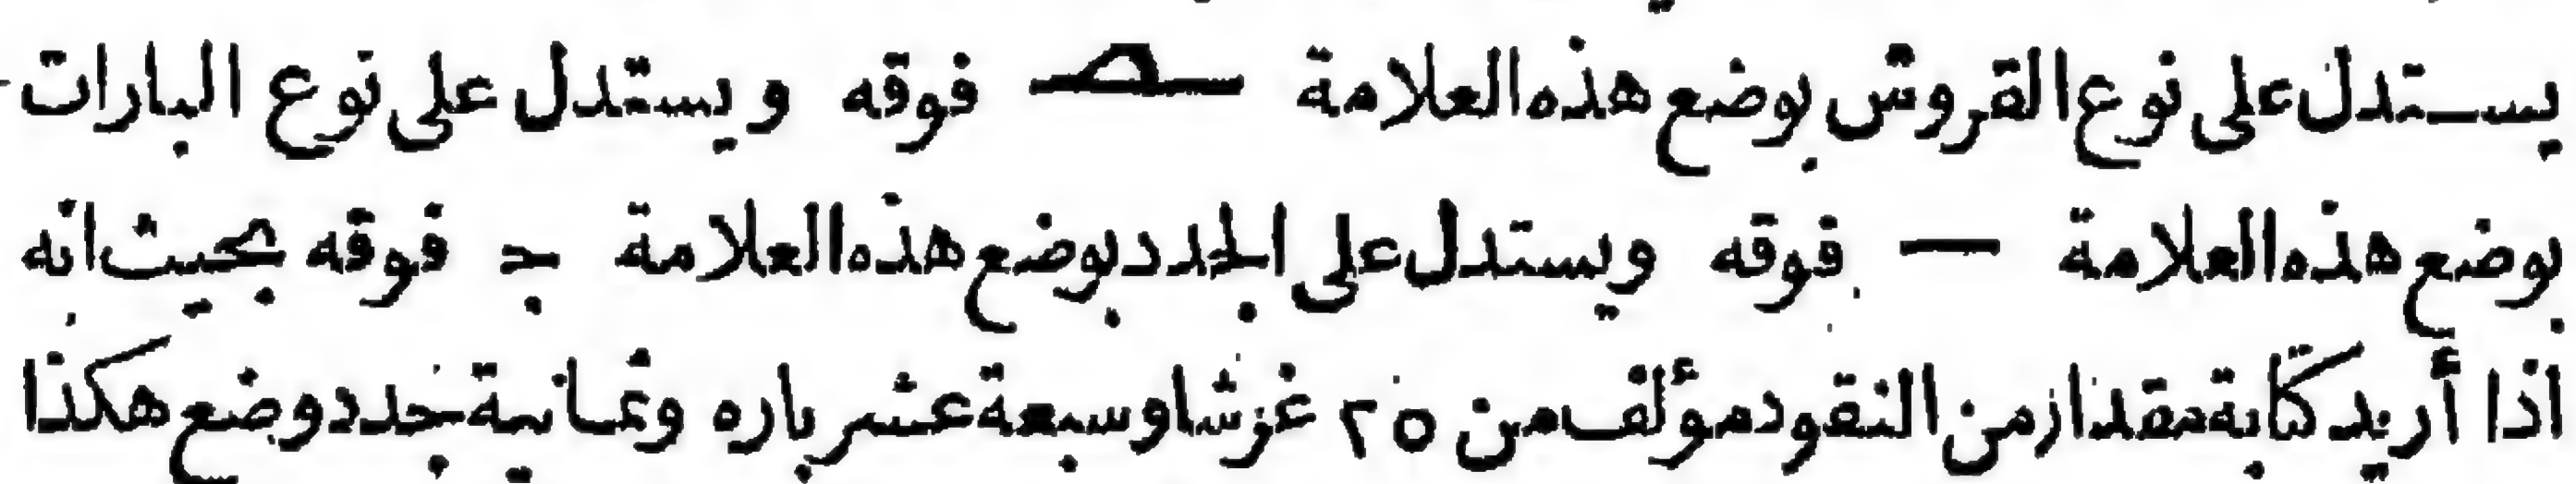 يستدل على نوع القروش بوضع هذه العلامة فوقه ويستدل على نوع البارات
بوضع هذه العلامة — فوقه ويستدل على الجدد بوضع هذه العلامة جـ فوقه بحيث انه
اذا أريد كتابة مقدار من النقود مؤلف من ٢٥ غرشا وسبعة عشر باره وثمانية جدد وضع هكذا